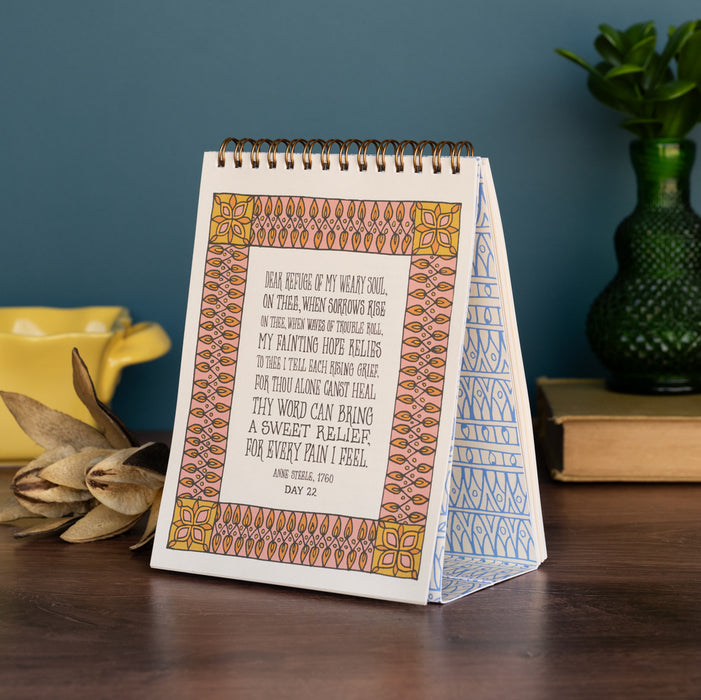 DEAR REFUGE OF MY WEARY SOUL,
ON THEE, WHEN SORROWS RISE
ON THEE, WHEN WAVES OF TROUBLE ROLL,
MY FAINTING HOPE RELIES
TO THEE I TELL EACH RISING GRIEF,
FOR THOU ALONE CANST HEAL
THY WORD CAN BRING
A SWEET RELIEF,
FOR EVERY PAIN I FEEL.
ANNE STEELE, 1760
DAY 22